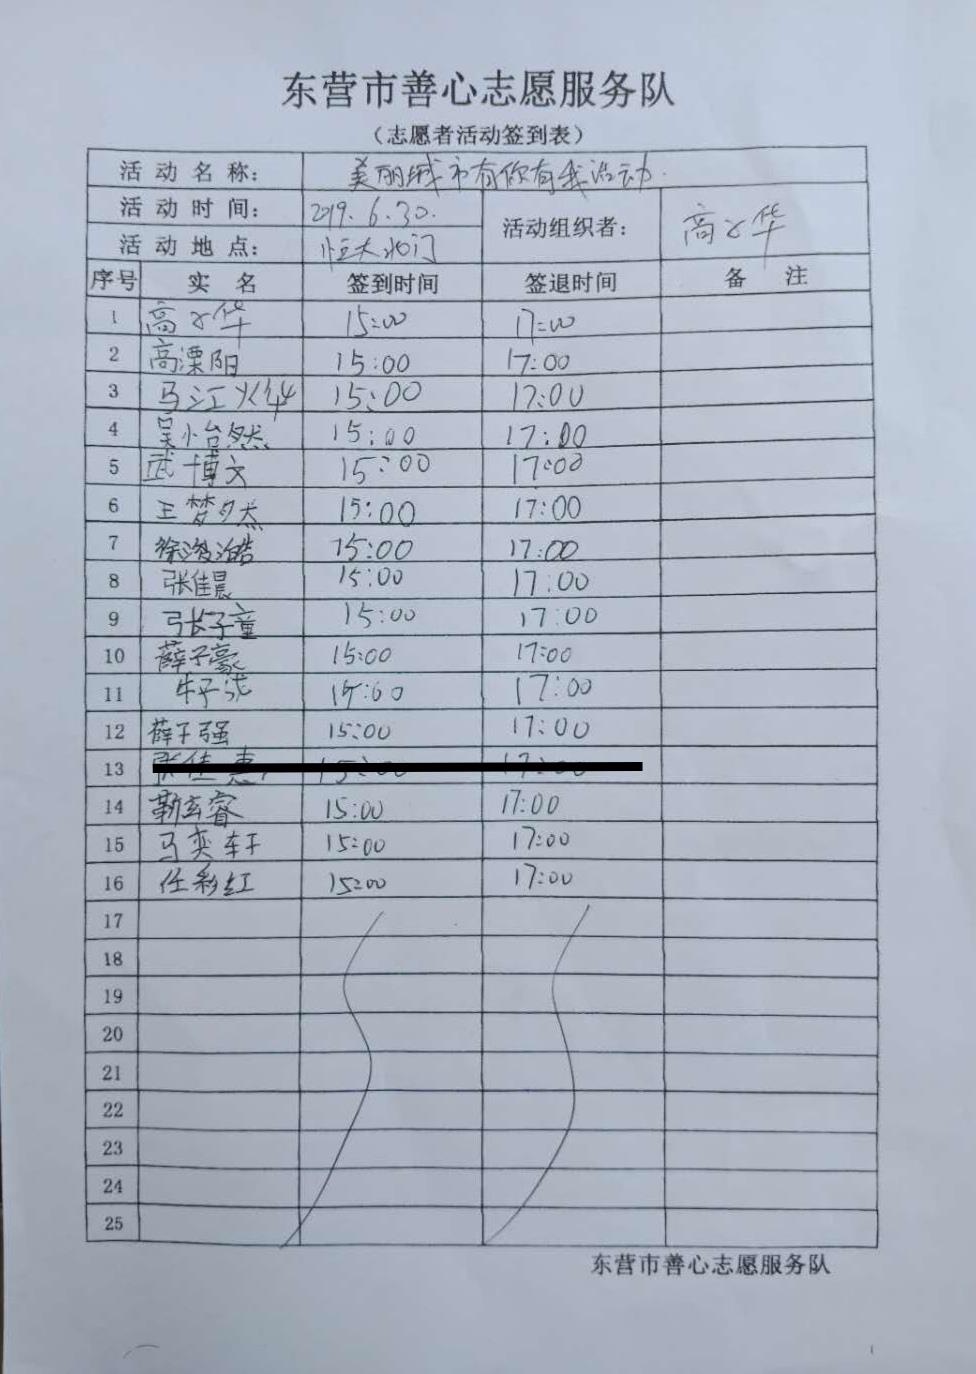 东营市善心志愿服务队
（志愿者活动签到表）
活动名称： 美丽城市有你有我活动.
活动时间： 2019.6.30. 活动组织者： 高华
活动地点： 恒大北门
序号 实名 签到时间 签退时间 备注
1 高华 15:00 17:00
2 高溧阳 15:00 17:00
3 马江 15:00 17:00
4 吴怡然 15:00 17:00
5 武博文 15:00 17:00
6 王梦然 15:00 17:00
7 徐浚皓 15:00 17:00
8 张佳晨 15:00 17:00
9 张子童 15:00 17:00
10 薛子豪 15:00 17:00
11 牛子 15:00 17:00
12 薛子强 15:00 17:00
13
14 靳玄睿 15:00 17:00
15 马奕轩 15:00 17:00
16 任彩红 15:00 17:00
17
18
19
20
21
22
23
24
25
东营市善心志愿服务队